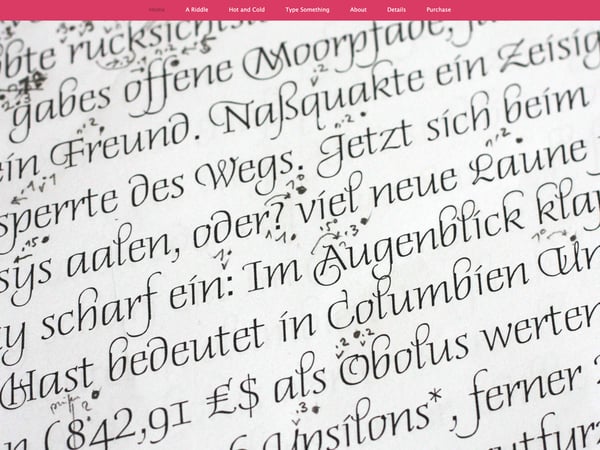 Home A Riddle Hot and Cold Type Something About Details Purchase
offene Moorpfade,
gabes
ein Freund. Naßquakte ein Zeisig
sperrte des Wegs. Jetzt sich beim
sys aalen, oder? viel neue Laune
ty scharf ein: Im Augenblick klap
Hast bedeutet in Columbien Un
(842,91 €$ als Obolus werten
Upsilons*, ferner